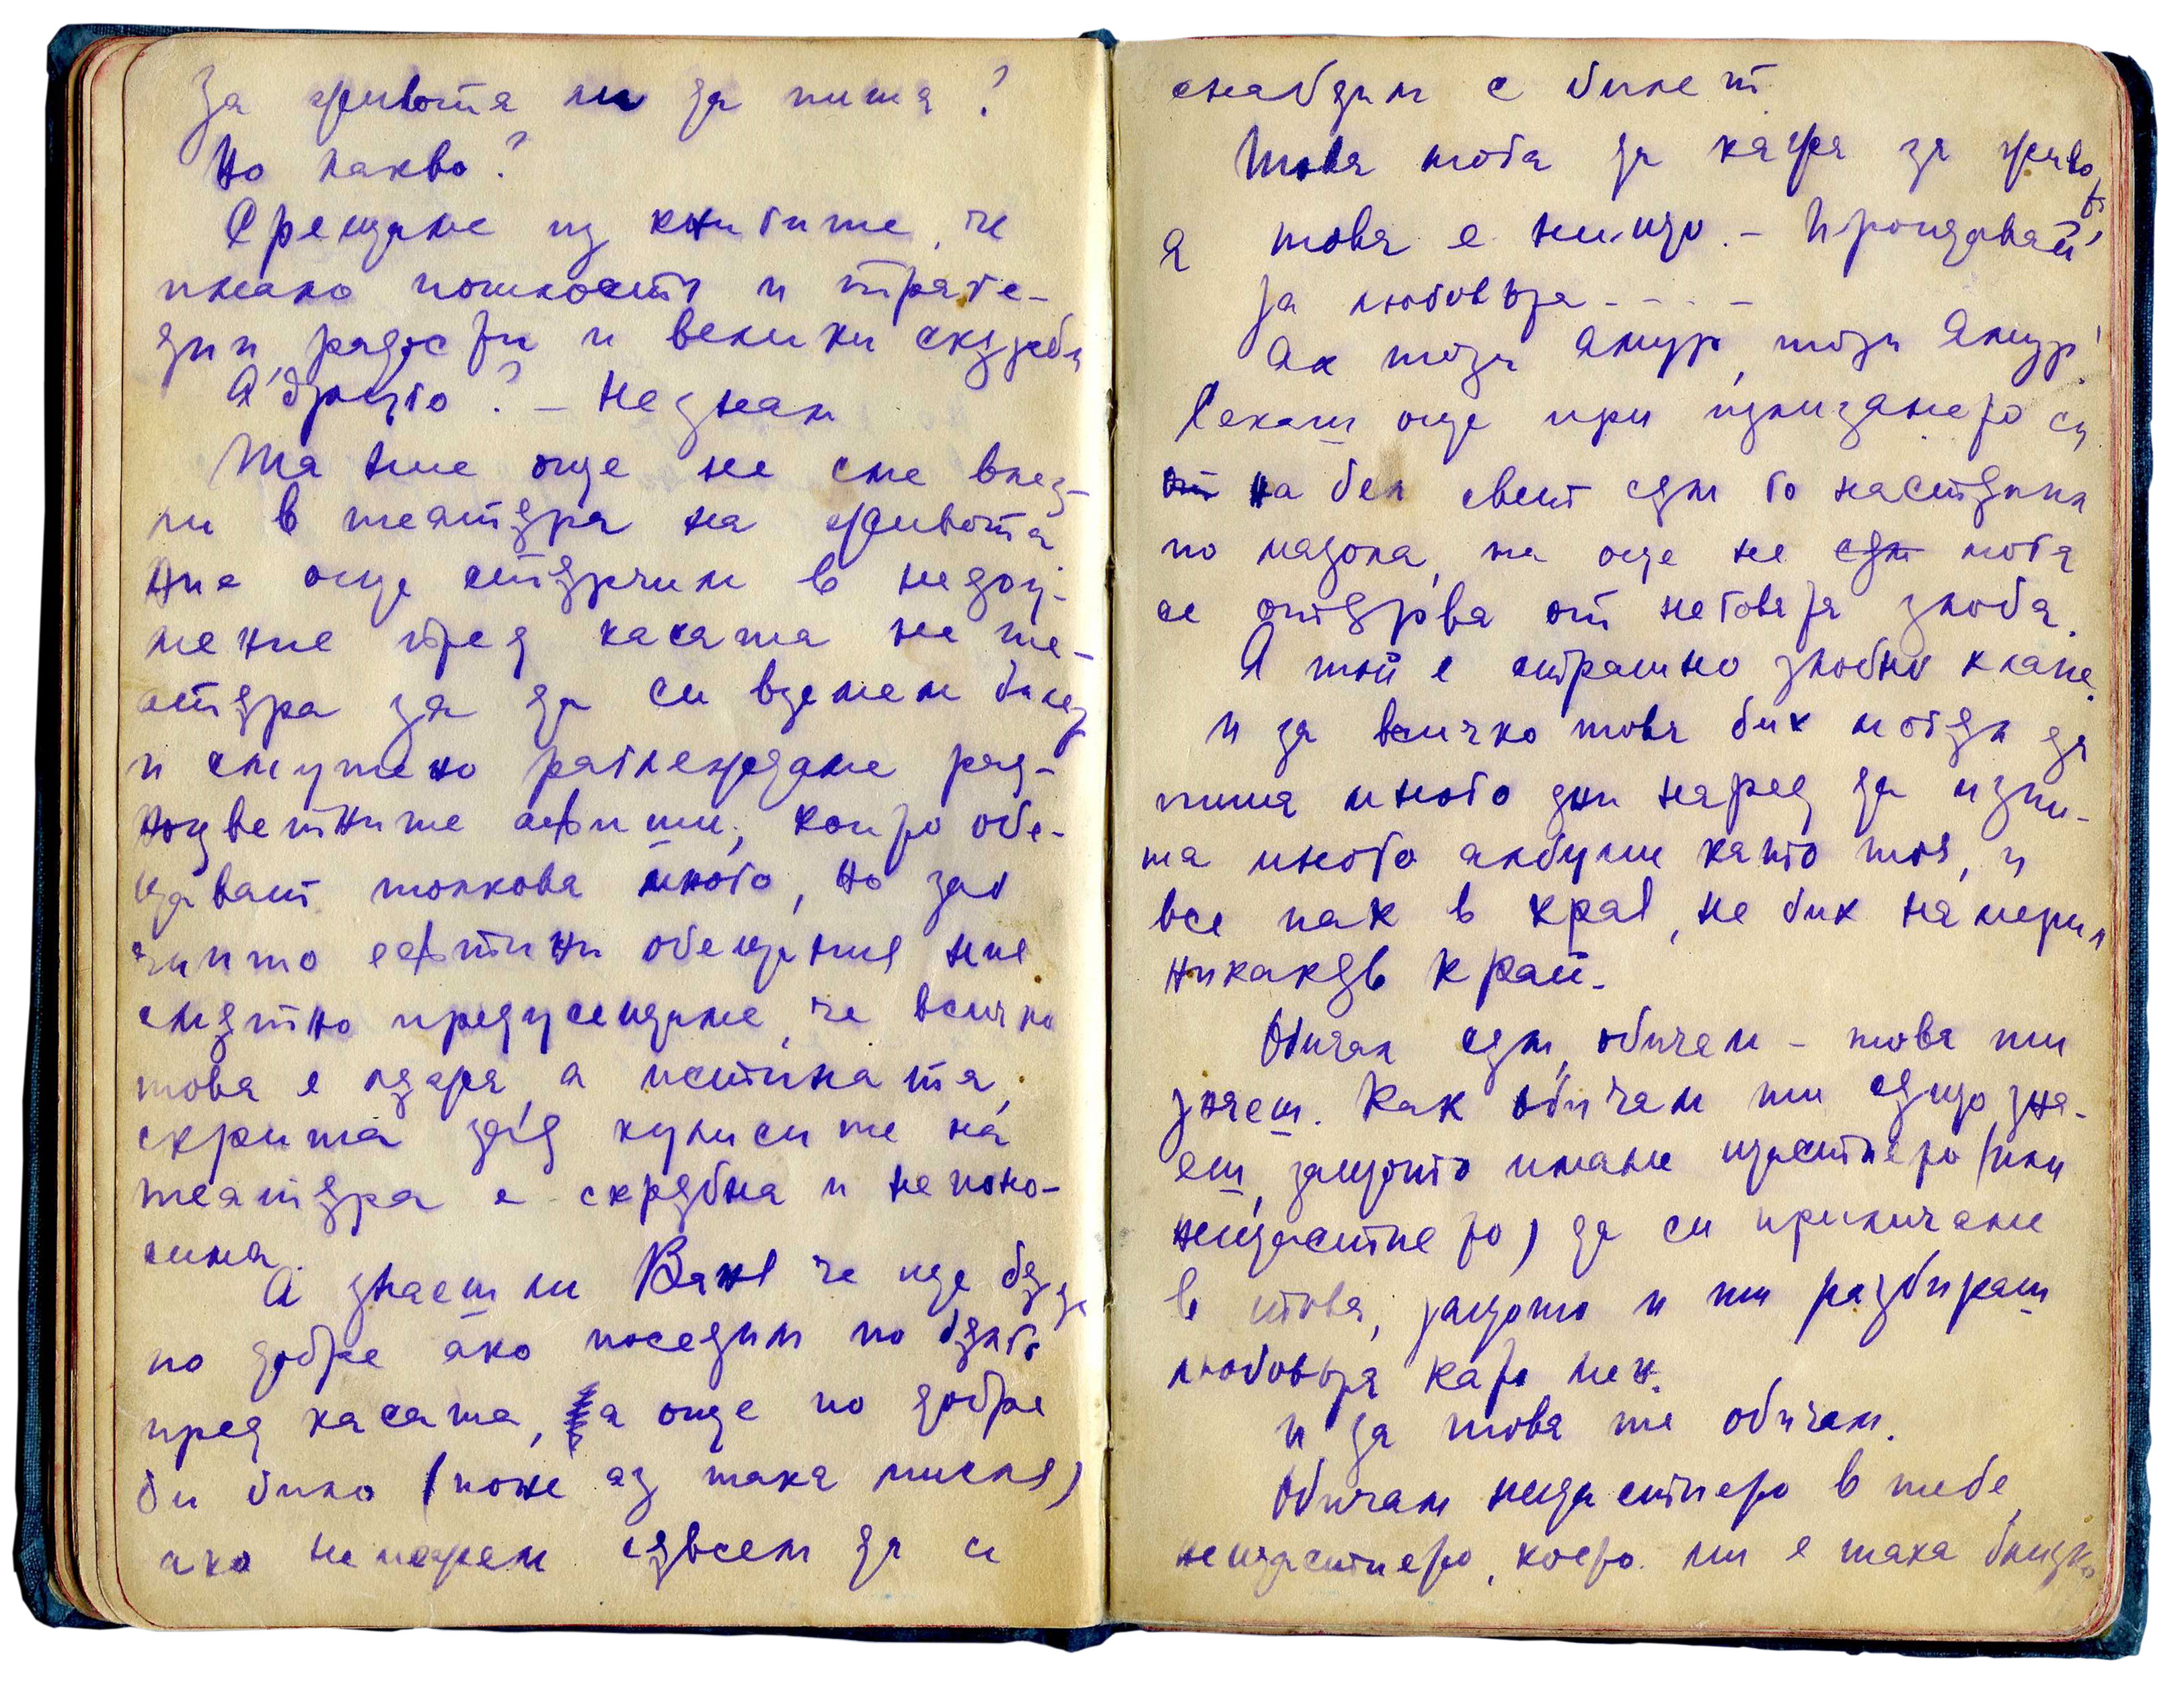 За живота ли да пиша?
Но какво?
Срещаме из книгите, че
имало пошлости и траге-
дии, радости и велики скърби
А другото? – Не знам
Та ние още не сме влез-
ли в театъра на живота
Ние още стърчим в недоу-
мение пред касата на те-
атъра за да си вземем билет
и смутено разглеждаме раз-
ноцветните афиши, които обе-
щават толкова много, но зад
чиито ефтини обещания ние
смътно предусещаме, че всичко
това е лъжа, а истината,
скрита зад кулисите на
театъра е скръбна и непоно-
сима.
А знаеш ли Ваня че ще бъде
по добре ако поседим по дълго
пред касата, а още по добре
би било (поне аз така мисля)
ако не можем съвсем да се
снабдим с билет
Това мога да кажа за живо
та
а това е нищо. – Прощавай!
За любовта - - - -
Ах този Амур, този Амур!
Сякаш още при излизането си
от на бел свет съм го настъпил
по мазола, та още не съм мога
се отърва от неговата злоба.
А той е страшно злобно хлапе.
И за всичко това бих могъл да
пиша много дни наред да изпи-
ша много албуми като тоя, и
все пак в края, не бих намерил
никакъв край.
Обичал съм, обичам – това ти
знаеш. Как обичам ти също зна-
еш, защото имаме щастието (или
нещастието) да си приличаме
в това, защото и ти разбираш
любовта като мен.
И за това те обичам.
Обичам нещастието в тебе,
нещастието, което ми е така близко